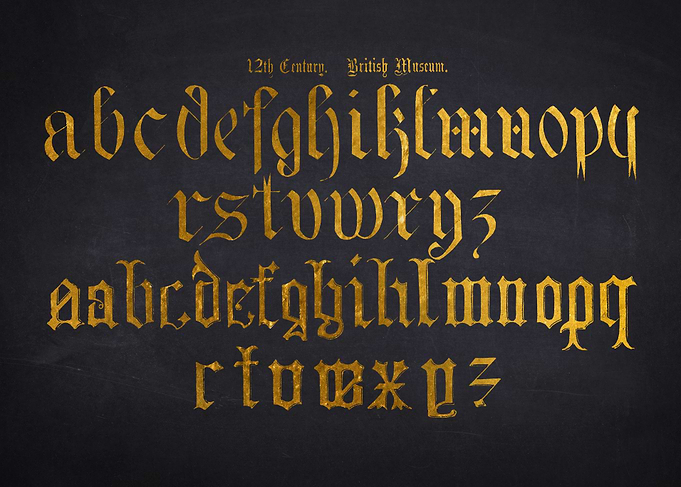 12th Century. British Museum.
abcdefghiklmnopq
rstvwxyz
aabcdefghiklmnopq
rtvwxyz